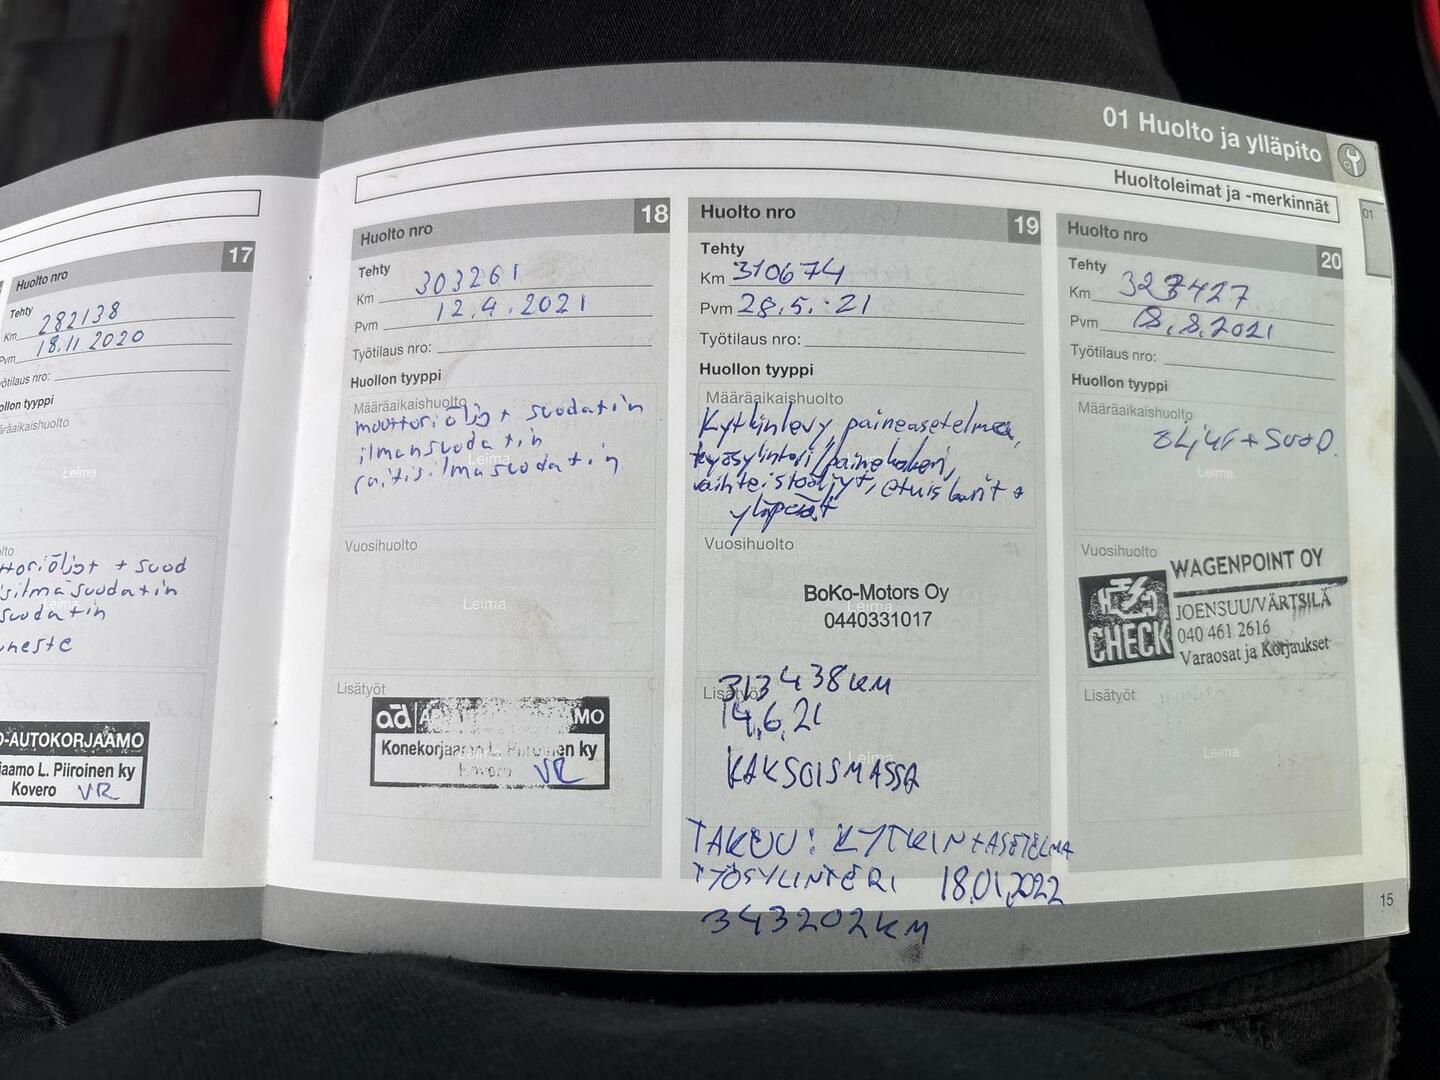 01 Huolto ja ylläpito
Huoltoleimat ja -merkinnät
01
17
Huolto nro
Tehty
Km 282138
Pvm 18.11.2020
Työtilaus nro:
Huollon tyyppi
Määräaikaishuolto
Leima
ttoriöljyt + suod
silmäsuodatin
suodatin
neste
O-AUTOKORJAAMO
jaamo L. Piiroinen ky
Kovero VR
18
Huolto nro
Tehty
Km 303261
Pvm 12.4.2021
Työtilaus nro:
Huollon tyyppi
Määräaikaishuolto
moottoriöljyt + suodatin
ilmansuodatin
raitisilmasuodatin
Leima
Vuosihuolto
Leima
Lisätyöt
ad
Konekorjaamo L. Piiroinen ky
Kovero VR
19
Huolto nro
Tehty
Km 310674
Pvm 28.5.-21
Työtilaus nro:
Huollon tyyppi
Määräaikaishuolto
Kytkinlevy, paineasetelma,
työsylinteri/painelaakeri,
vaihteistoöljyt, etuiskarit +
yläpäät
Vuosihuolto
BoKo-Motors Oy
Leima
0440331017
Lisätyöt
313438KM
14.6.21
KAKSOISMASSA
Leima
TAKUU: KYTKIN+ASETELMA
TYÖSYLINTERI 18.01.2022
343202KM
20
Huolto nro
Tehty
Km 327427
Pvm 18.8.2021
Työtilaus nro:
Huollon tyyppi
Määräaikaishuolto
ÖLJYT + SUOD.
Leima
Vuosihuolto
CHECK
WAGENPOINT OY
JOENSUU/VÄRTSILÄ
040 461 2616
Varaosat ja Korjaukset
Lisätyöt
Leima
15